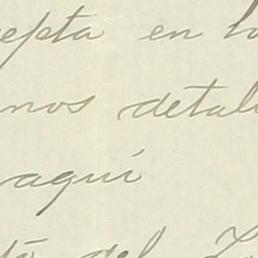 epta en lo
nos detal
aquí
tó del